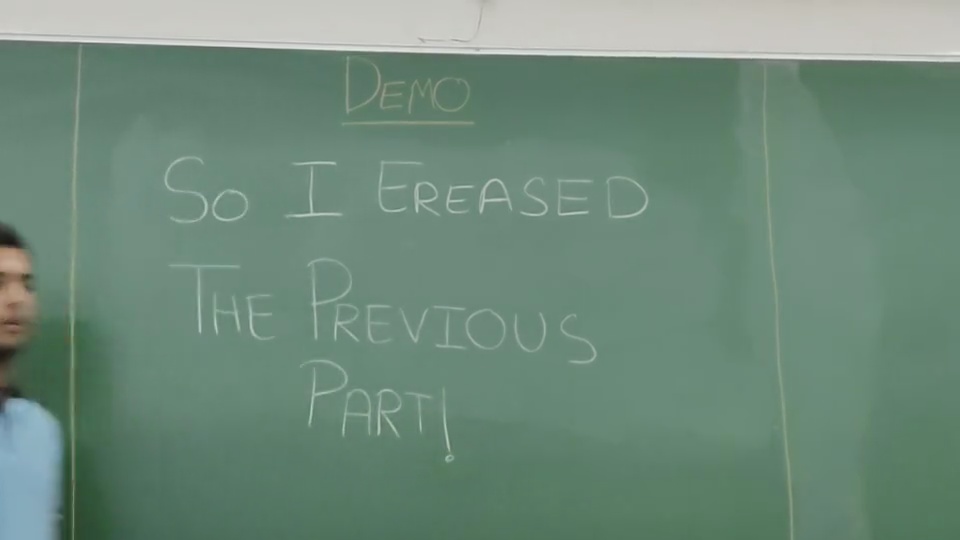 DEMO
SO I EREASED
THE PREVIOUS
PART!